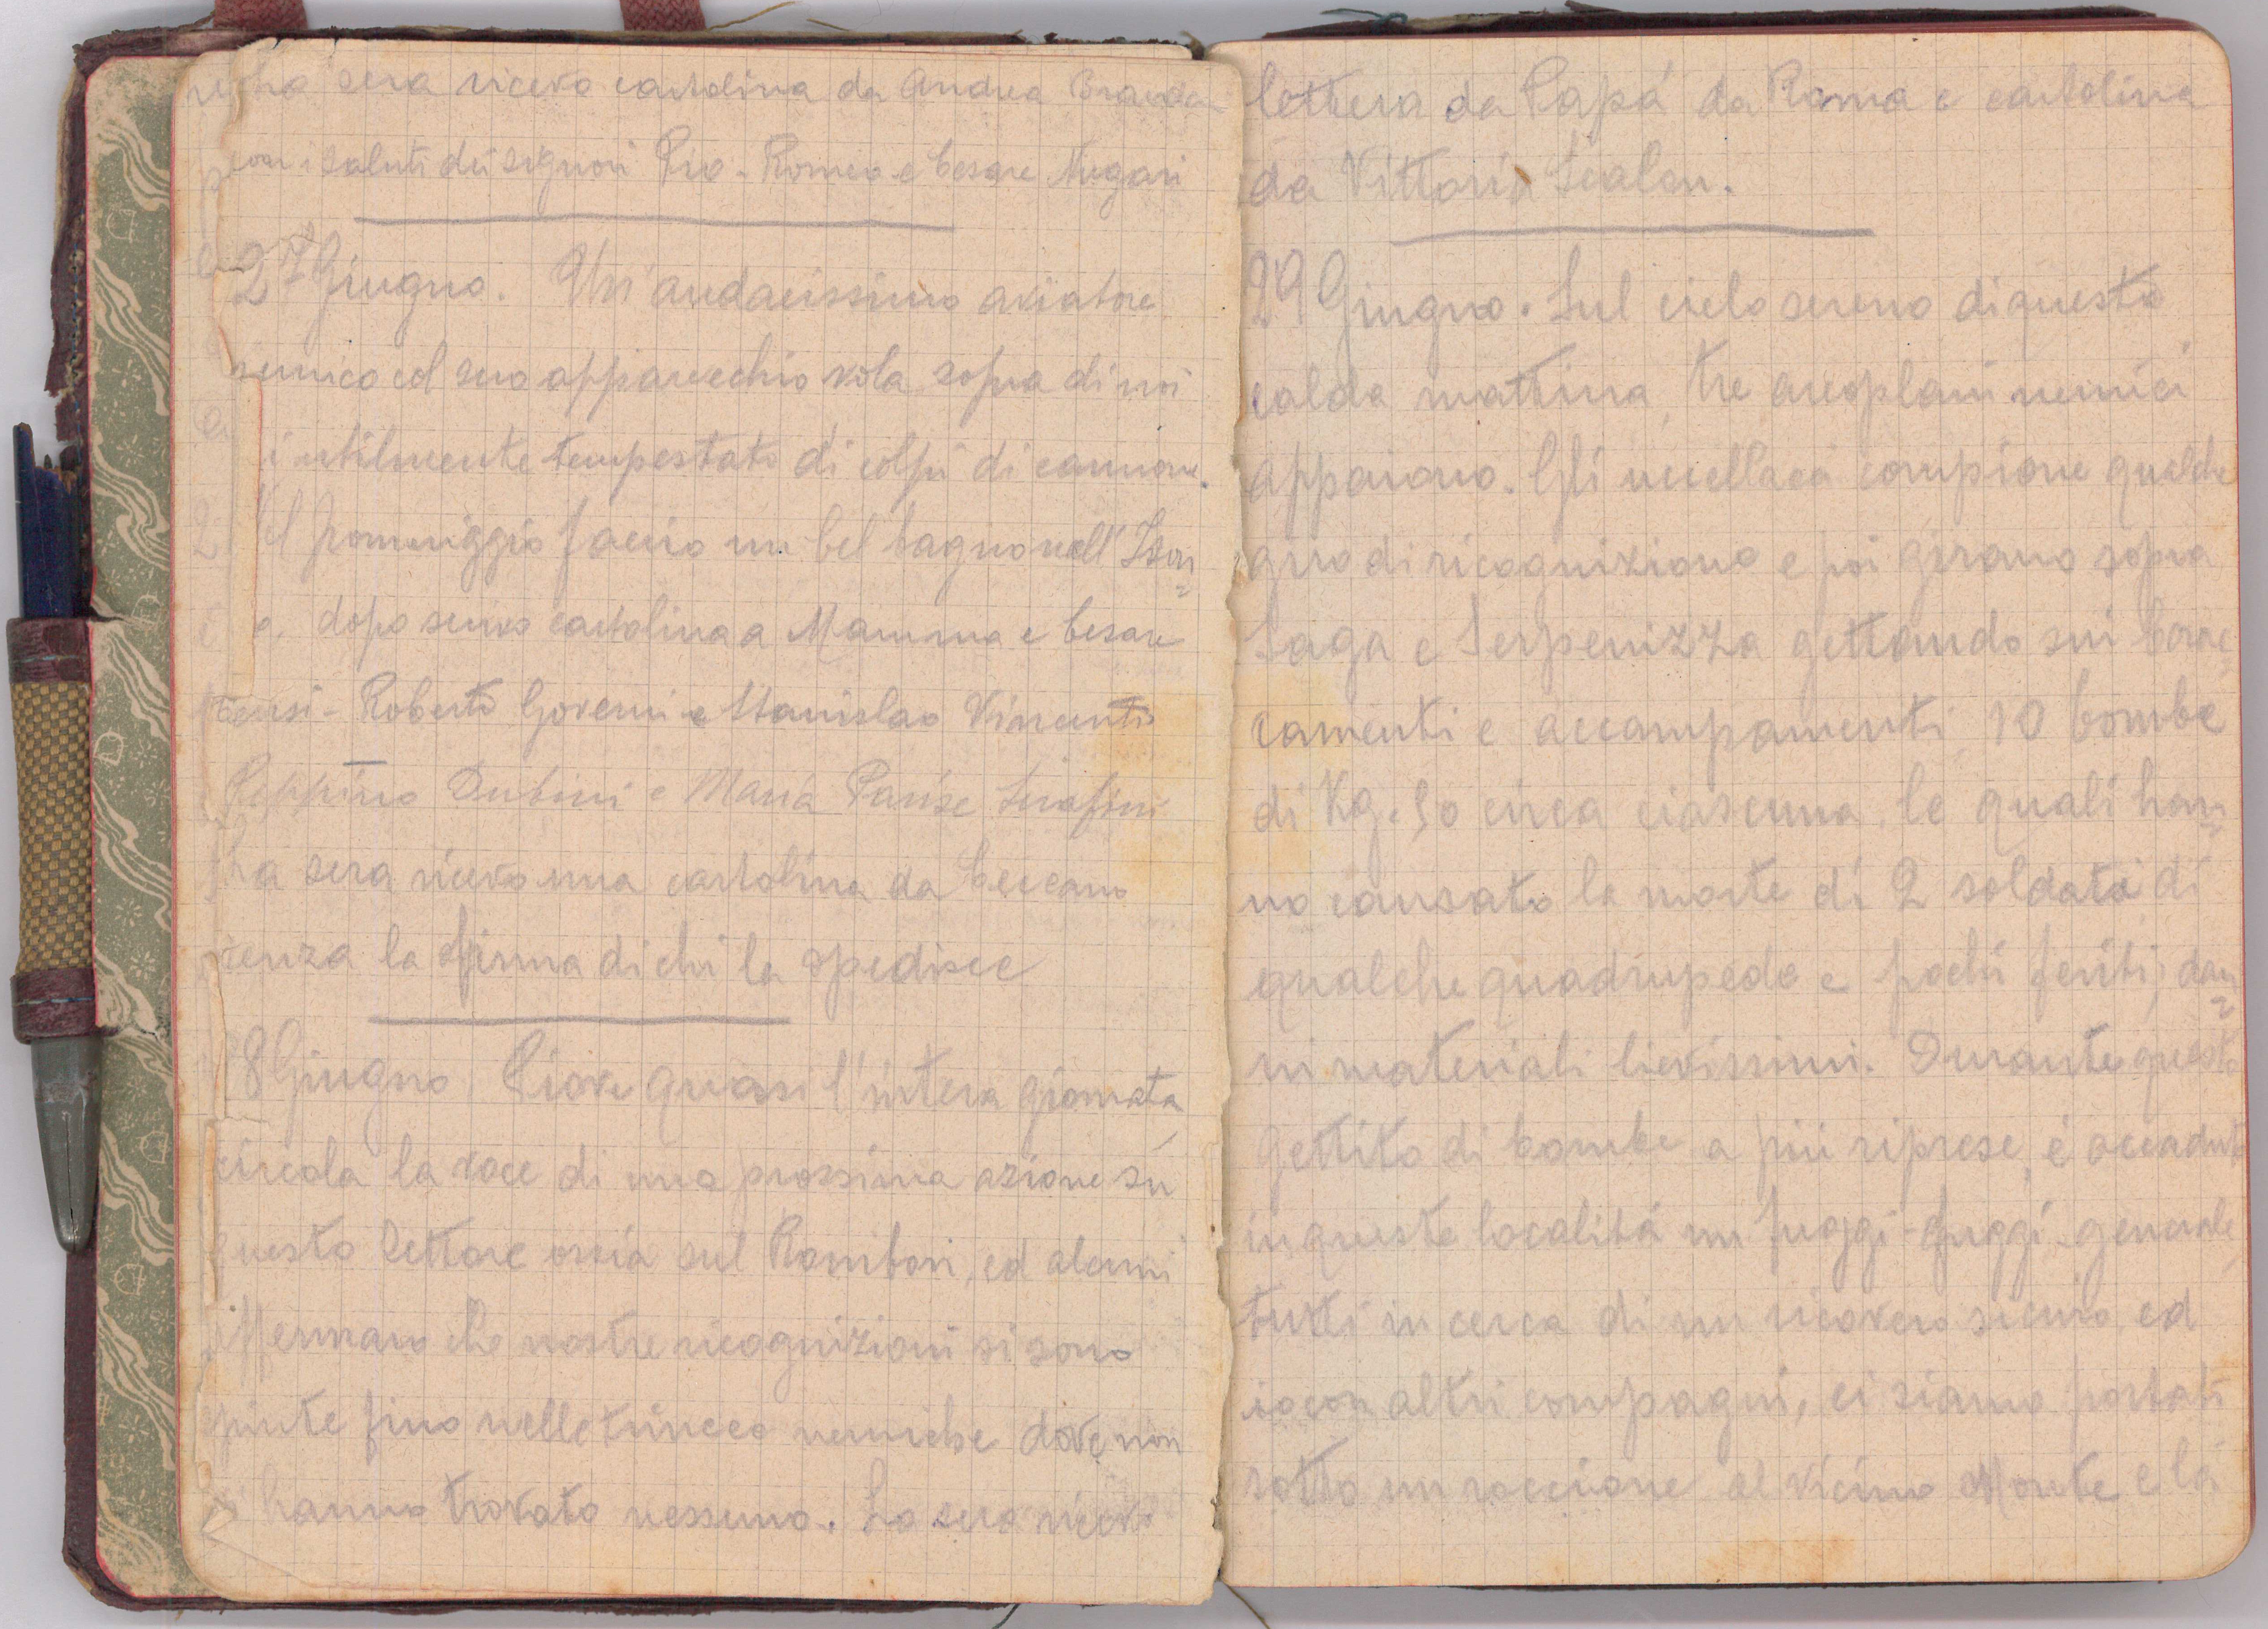 La sera ricevo cartolina da Andrea
con i saluti dei signori Pio - Romeo e Cesare
27 Giugno. Un'audacissimo aviatore
nemico col suo apparecchio vola sopra di noi
inutilmente tempestato di colpi di cannone.
Nel pomeriggio faccio un bel bagno nell'Ison=
zo. dopo scrivo cartolina a Mamma e Cesare
Tensi - Roberto Governi e Stanislao Vincenti
Peppino Dubini e Maria Parise Serafini
La sera ricevo una cartolina da Ceccano
senza la firma di chi la spedisce
28 Giugno Piove quasi l'intera giornata,
circola la voce di una prossima azione su
questo settore ossia sul Rombon, ed alcuni
affermano che nostre ricognizioni si sono
spinte fino nelle trincee nemiche dove non
hanno trovato nessuno. La sera ricevo
lettera da Papá da Roma e cartolina
da Vittorio Scalon.
29 Giugno. Sul cielo sereno di questa
calda mattina, tre areoplani nemici
appaiono. Gli uccellacci compione qualche
giro di ricognizione e poi girano sopra
Saga e Serpenizza gettando sui barac=
camenti e accampamenti, 10 bombe
di Kg. 50 circa ciascuna, le quali han=
no causato la morte di 2 soldati di
qualche quadrupede e pochi feriti; dan=
ni materiali lievissimi. Durante questo
gettito di bombe a più riprese, é accaduto
in queste localitá un fuggi-fuggi generale,
tutti in cerca di un ricovero sicuro ed
io con altri compagni, ci siamo portati
sotto un roccione al vicino Monte e lá